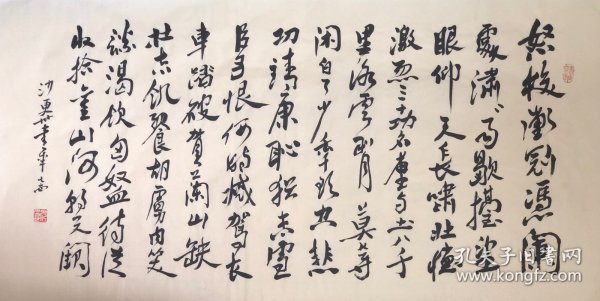 怒发冲冠凭阑
处潇潇雨歇抬望
眼仰天长啸壮怀
激烈三十功名尘与土八千
里路云和月莫等
闲白了少年头空悲
切靖康耻犹未雪
臣子恨何时灭驾长
车踏破贺兰山缺
壮志饥餐胡虏肉笑
谈渴饮匈奴血待从
收拾旧山河朝天阙
孔夫子旧书网
www.kongfz.com